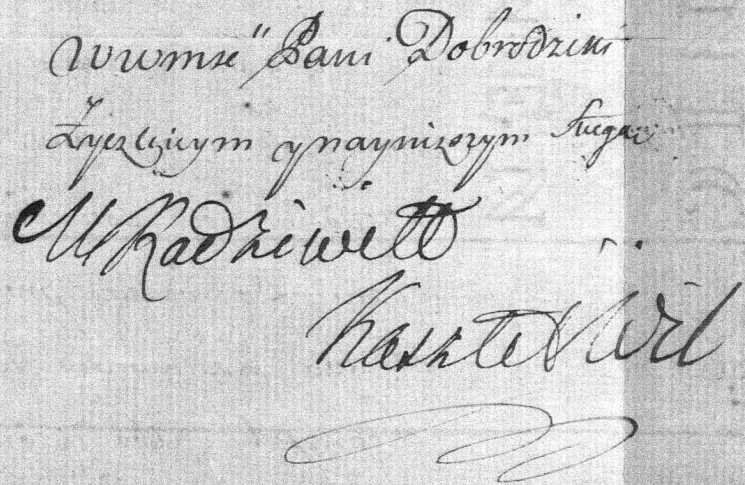 WWmse Pani Dobrodziki
Zyczliwym y naynizszym Sługą
M Radziwiłł
Kasztel Wil